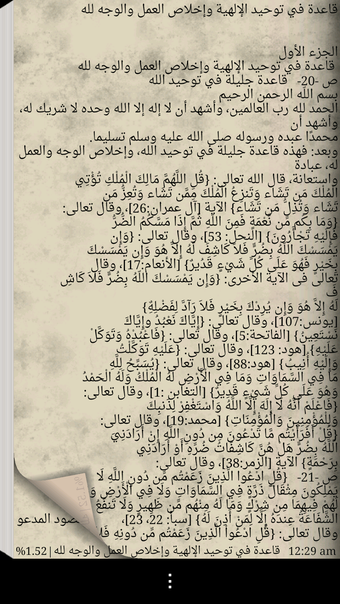 قاعدة في توحيد الإلهية وإخلاص العمل والوجه لله
الجزء الأول
قاعدة في توحيد الإلهية وإخلاص العمل والوجه لله
ص -20- قاعدة جليلة في توحيد الله
بسم الله الرحمن الرحيم
الحمد لله رب العالمين، وأشهد أن لا إله إلا الله وحده لا شريك له،
وأشهد أن
محمدًا عبده ورسوله صلى الله عليه وسلم تسليما.
وبعد: فهذه قاعدة جليلة في توحيد الله، وإخلاص الوجه والعمل
له، عبادة
واستعانة، قال الله تعالى: {قُلِ اللَّهُمَّ مَالِكَ الْمُلْكِ تُؤْتِي
الْمُلْكَ مَن تَشَاء وَتَنزِعُ الْمُلْكَ مِمَّن تَشَاء وَتُعِزُّ مَن
تَشَاء وَتُذِلُّ مَن تَشَاء} الآية [آل عمران:26]، وقال تعالى:
{وَمَا بِكُم مِّن نِّعْمَةٍ فَمِنَ اللَّهِ ثُمَّ إِذَا مَسَّكُمُ الضُّرُّ
فَإِلَيْهِ تَجْأَرُونَ} [النحل: 53]، وقال تعالى: {وَإِن
يَمْسَسْكَ اللَّهُ بِضُرٍّ فَلاَ كَاشِفَ لَهُ إِلاَّ هُوَ وَإِن يَمْسَسْكَ
بِخَيْرٍ فَهُوَ عَلَى كُلِّ شَيْءٍ قَدِيرٌ} [الأنعام:17]، وقال
تعالى في الآية الأخرى: {وَإِن يَمْسَسْكَ اللَّهُ بِضُرٍّ فَلاَ كَاشِ
فَ
لَهُ إِلاَّ هُوَ وَإِن يُرِدْكَ بِخَيْرٍ فَلاَ رَآدَّ لِفَضْلِهِ}
[يونس:107]، وقال تعالى: {إِيَّاكَ نَعْبُدُ وإِيَّاكَ
نَسْتَعِينُ} [الفاتحة:5]، وقال تعالى: {فَاعْبُدْهُ وَتَوَكَّلْ
عَلَيْهِ} [هود: 123]، وقال تعالى: {عَلَيْهِ تَوَكَّلْتُ
وَإِلَيْهِ أُنِيبُ} [هود:88]، وقال تعالى: {يُسَبِّحُ لِلَّهِ
مَا فِي السَّمَاوَاتِ وَمَا فِي الْأَرْضِ لَهُ الْمُلْكُ وَلَهُ الْحَمْدُ
وَهُوَ عَلَى كُلِّ شَيْءٍ قَدِيرٌ} [التغابن :1]، وقال تعالى:
{فَاعْلَمْ أَنَّهُ لَا إِلَهَ إِلَّا اللَّهُ وَاسْتَغْفِرْ لِذَنبِكَ
وَلِلْمُؤْمِنِينَ وَالْمُؤْمِنَاتِ} [محمد:19]، وقال تعالى:
{قُلْ أَفَرَأَيْتُم مَّا تَدْعُونَ مِن دُونِ اللَّهِ إِنْ أَرَادَنِيَ
اللَّهُ بِضُرٍّ هَلْ هُنَّ كَاشِفَاتُ ضُرِّهِ أَوْ أَرَادَنِي
بِرَحْمَةٍ} الآية [الزمر:38]، وقال تعالى:
ص -21- {قُلِ ادْعُوا الَّذِينَ زَعَمْتُم مِّن دُونِ اللَّهِ لَا
يَمْلِكُونَ مِثْقَالَ ذَرَّةٍ فِي السَّمَاوَاتِ وَلَا فِي الْأَرْضِ وَ
لَهُمْ فِيهِمَا مِن شِرْكٍ وَمَا لَهُ مِنْهُم مِّن ظَهِيرٍ وَلَا تَنفَعُ
الشَّفَاعَةُ عِندَهُ إِلَّا لِمَنْ أَذِنَ لَهُ} [سبأ: 22، 23]،
وقال تعالى: {قُلِ ادْعُوا الَّذِينَ زَعَمْتُم مِّن دُونِهِ فَلَا
%1.52 | قاعدة في توحيد الإلهية وإخلاص العمل والوجه لله 12:29 am